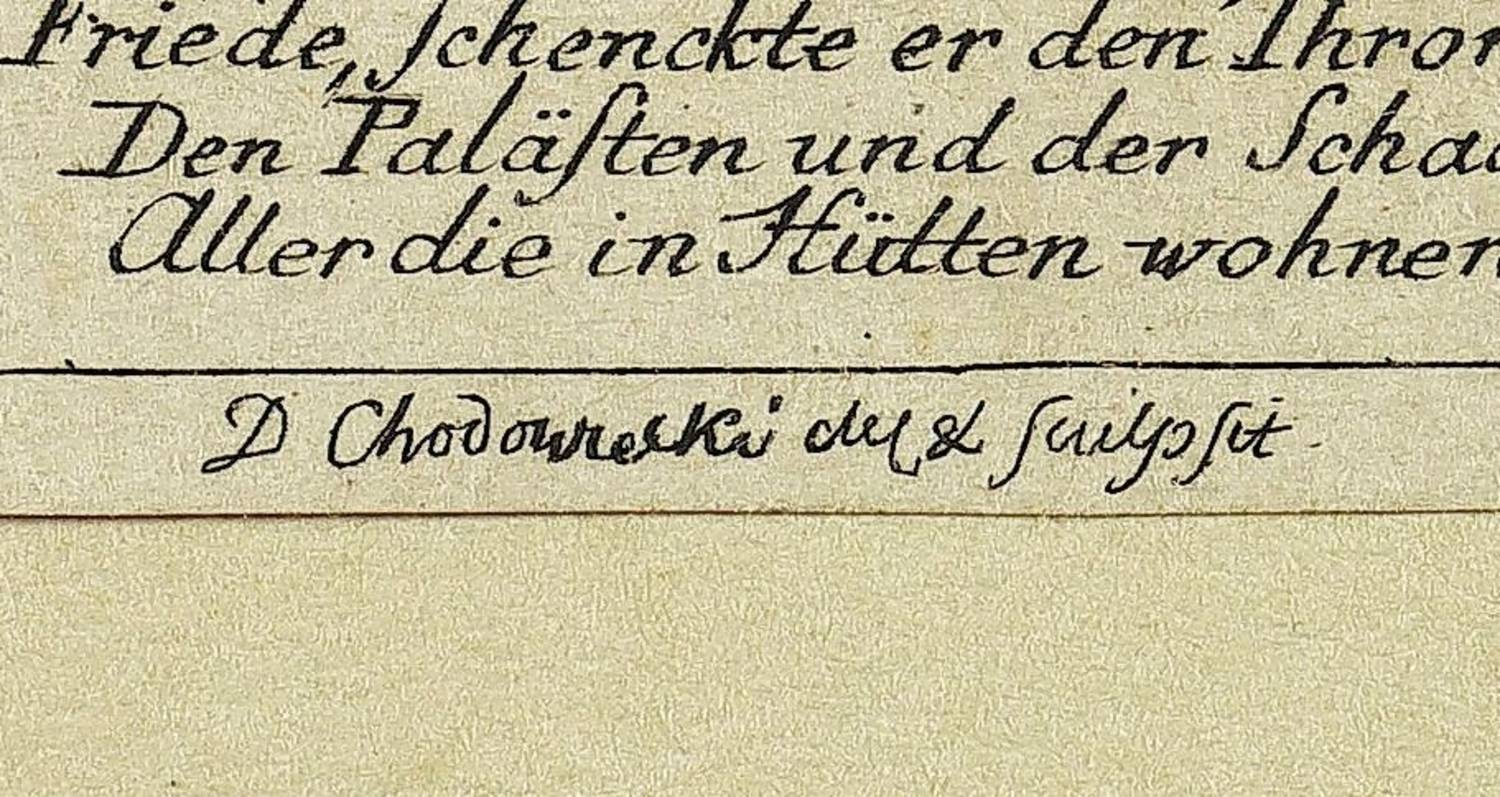 Friede, schenckte er den Thron
Den Palästen und der Scha
Aller die in Hütten wohnen
D Chodowiecki del & sculpsit